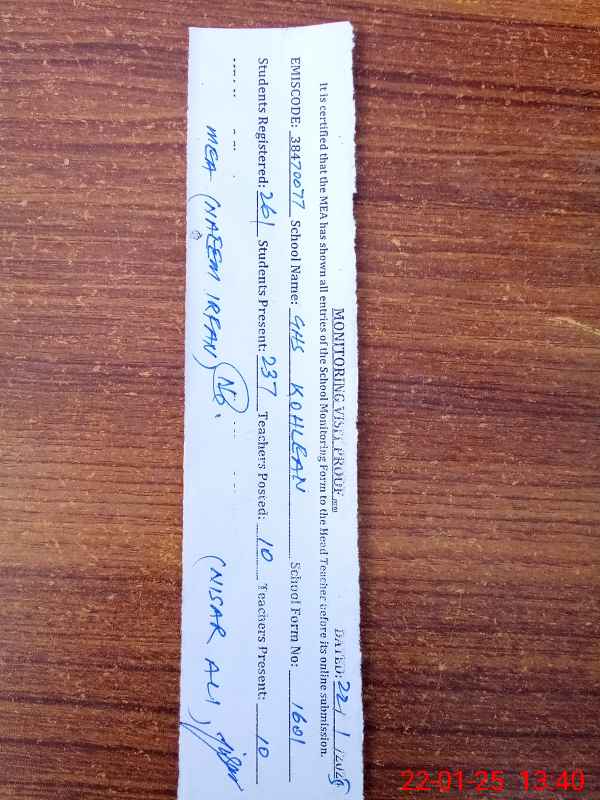 MONITORING VISIT PROOF DATED: 22/1/2025
It is certified that the MEA has shown all entries of the School Monitoring Form to the Head Teacher before its online submission.
EMISCODE: 38470077 School Name: GHS KOHLEAN School Form No: 1601
Students Registered: 261 Students Present: 237 Teachers Posted: 10 Teachers Present: 10
MEA (NAEEM IRFAN) (NISAR ALI)
22-01-25 13:40